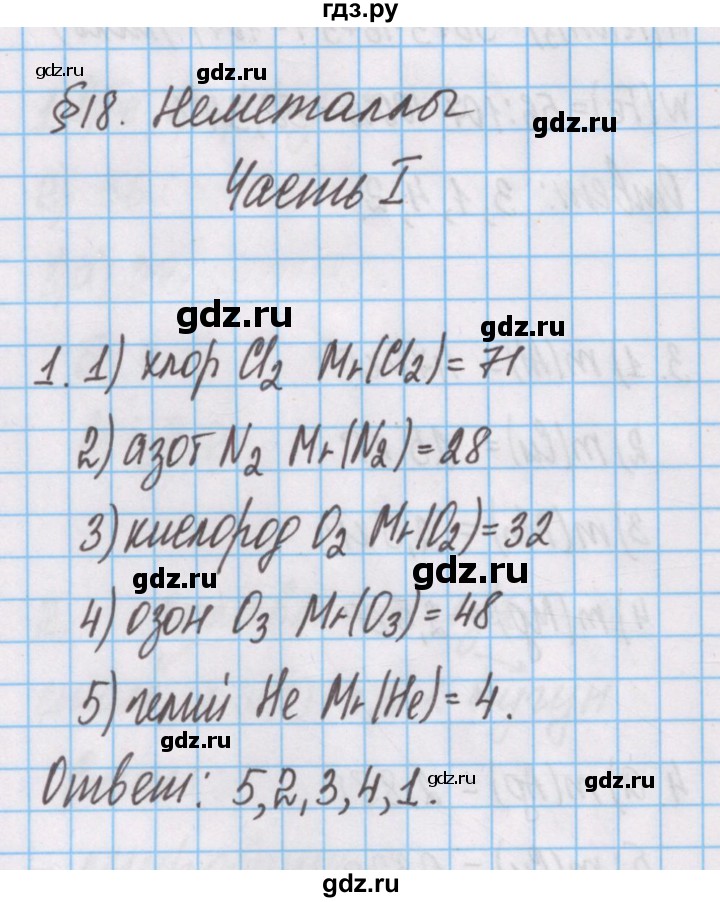 гдз.ру
gdz.ru
gdz.ru
§18. Неметаллы
gdz.ru
Часть I
gdz.ru
gdz.ru
1. 1) хлор Cl2 Mr(Cl2)=71
2) азот N2 Mr(N2)=28
3) кислород O2 Mr(O2)=32
gdz.ru
gdz.ru
4) озон O3 Mr(O3)=48
5) гелий He Mr(He)=4.
gdz.ru
Ответ: 5,2,3,4,1.
gdz.ru
gdz.ru
gdz.ru